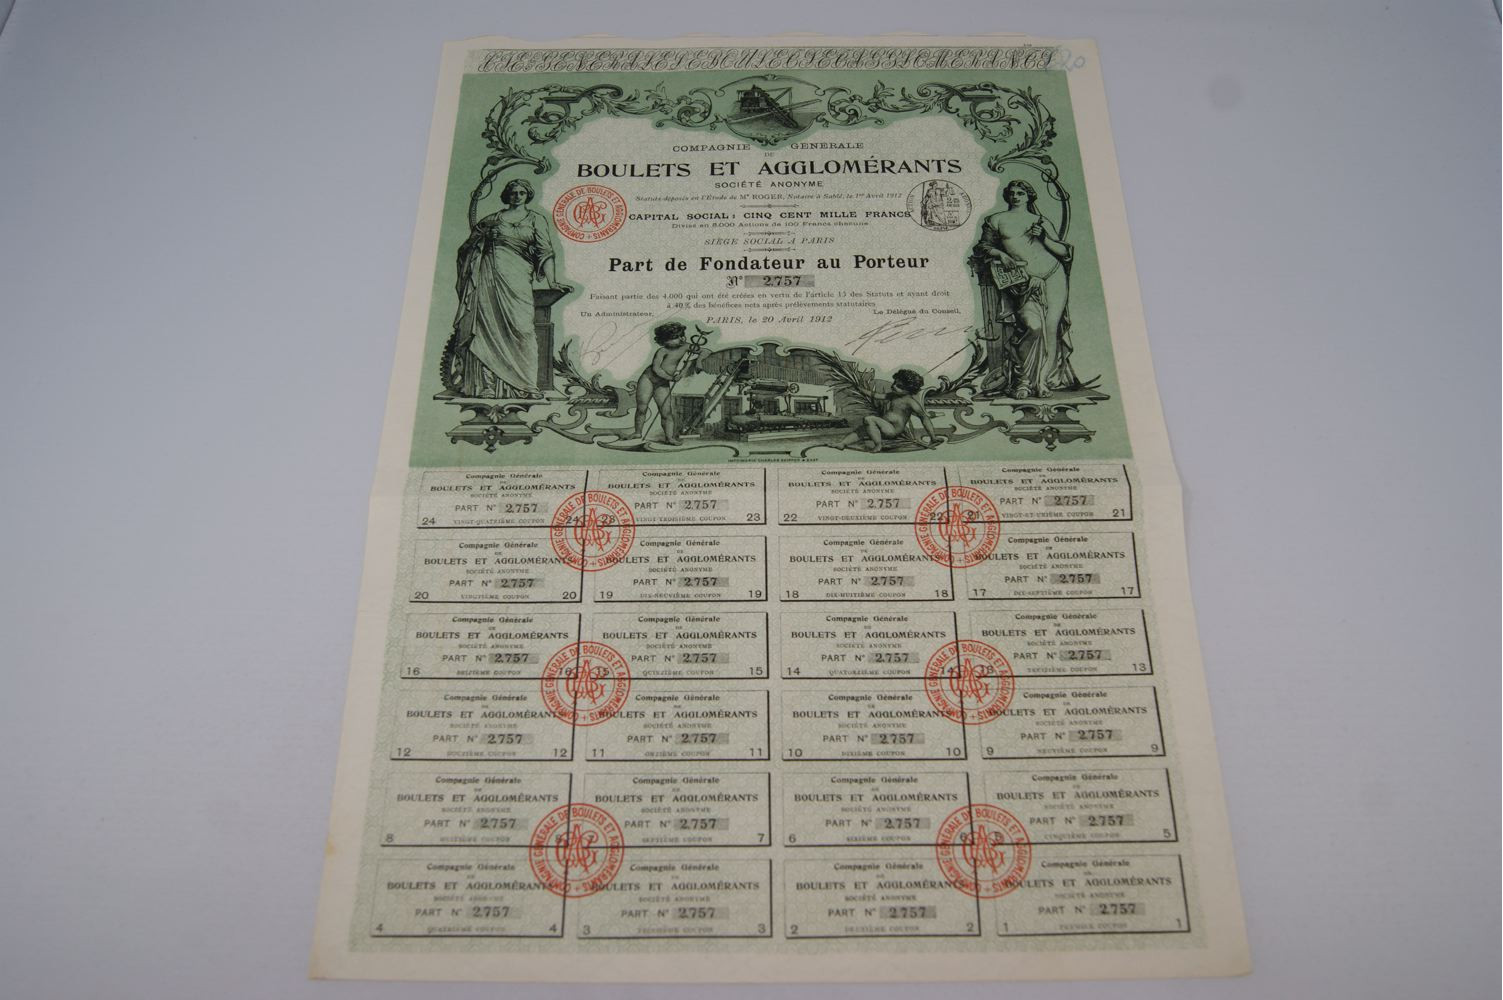 CIE GENERALE DE BOULETS ET AGGLOMERANTS
£20
COMPAGNIE GENERALE
DE
BOULETS ET AGGLOMÉRANTS
SOCIÉTÉ ANONYME
Statuts déposés en l'Étude de Me ROGER, Notaire à Sablé, le 1er Avril 1912
CAPITAL SOCIAL: CINQ CENT MILLE FRANCS
Divisé en 5.000 Actions de 100 Francs chacune
SIÈGE SOCIAL A PARIS
Part de Fondateur au Porteur
N° 2.757
Faisant partie des 4.000 qui ont été créées en vertu de l'article 15 des Statuts et ayant droit
à 40 % des bénéfices nets après prélèvements statutaires
Un Administrateur, Le Délégué du Conseil,
PARIS, le 20 Avril 1912
COMPAGNIE GÉNÉRALE DE BOULETS ET AGGLOMÉRANTS
Compagnie Générale
DE
BOULETS ET AGGLOMÉRANTS
SOCIÉTÉ ANONYME
PART N° 2.757
24 VINGT-QUATRIÈME COUPON 24
Compagnie Générale
DE
BOULETS ET AGGLOMÉRANTS
SOCIÉTÉ ANONYME
PART N° 2.757
23 VINGT-TROISIÈME COUPON 23
Compagnie Générale
DE
BOULETS ET AGGLOMÉRANTS
SOCIÉTÉ ANONYME
PART N° 2.757
22 VINGT-DEUXIÈME COUPON 22
Compagnie Générale
DE
BOULETS ET AGGLOMÉRANTS
SOCIÉTÉ ANONYME
PART N° 2.757
21 VINGT-ET-UNIÈME COUPON 21
Compagnie Générale
DE
BOULETS ET AGGLOMÉRANTS
SOCIÉTÉ ANONYME
PART N° 2.757
20 VINGTIÈME COUPON 20
Compagnie Générale
DE
BOULETS ET AGGLOMÉRANTS
SOCIÉTÉ ANONYME
PART N° 2.757
19 DIX-NEUVIÈME COUPON 19
Compagnie Générale
DE
BOULETS ET AGGLOMÉRANTS
SOCIÉTÉ ANONYME
PART N° 2.757
18 DIX-HUITIÈME COUPON 18
Compagnie Générale
DE
BOULETS ET AGGLOMÉRANTS
SOCIÉTÉ ANONYME
PART N° 2.757
17 DIX-SEPTIÈME COUPON 17
Compagnie Générale
DE
BOULETS ET AGGLOMÉRANTS
SOCIÉTÉ ANONYME
PART N° 2.757
16 SEIZIÈME COUPON 16
Compagnie Générale
DE
BOULETS ET AGGLOMÉRANTS
SOCIÉTÉ ANONYME
PART N° 2.757
15 QUINZIÈME COUPON 15
Compagnie Générale
DE
BOULETS ET AGGLOMÉRANTS
SOCIÉTÉ ANONYME
PART N° 2.757
14 QUATORZIÈME COUPON 14
Compagnie Générale
DE
BOULETS ET AGGLOMÉRANTS
SOCIÉTÉ ANONYME
PART N° 2.757
13 TREIZIÈME COUPON 13
Compagnie Générale
DE
BOULETS ET AGGLOMÉRANTS
SOCIÉTÉ ANONYME
PART N° 2.757
12 DOUZIÈME COUPON 12
Compagnie Générale
DE
BOULETS ET AGGLOMÉRANTS
SOCIÉTÉ ANONYME
PART N° 2.757
11 ONZIÈME COUPON 11
Compagnie Générale
DE
BOULETS ET AGGLOMÉRANTS
SOCIÉTÉ ANONYME
PART N° 2.757
10 DIXIÈME COUPON 10
Compagnie Générale
DE
BOULETS ET AGGLOMÉRANTS
SOCIÉTÉ ANONYME
PART N° 2.757
9 NEUVIÈME COUPON 9
Compagnie Générale
DE
BOULETS ET AGGLOMÉRANTS
SOCIÉTÉ ANONYME
PART N° 2.757
8 HUITIÈME COUPON 8
Compagnie Générale
DE
BOULETS ET AGGLOMÉRANTS
SOCIÉTÉ ANONYME
PART N° 2.757
7 SEPTIÈME COUPON 7
Compagnie Générale
DE
BOULETS ET AGGLOMÉRANTS
SOCIÉTÉ ANONYME
PART N° 2.757
6 SIXIÈME COUPON 6
Compagnie Générale
DE
BOULETS ET AGGLOMÉRANTS
SOCIÉTÉ ANONYME
PART N° 2.757
5 CINQUIÈME COUPON 5
Compagnie Générale
DE
BOULETS ET AGGLOMÉRANTS
SOCIÉTÉ ANONYME
PART N° 2.757
4 QUATRIÈME COUPON 4
Compagnie Générale
DE
BOULETS ET AGGLOMÉRANTS
SOCIÉTÉ ANONYME
PART N° 2.757
3 TROISIÈME COUPON 3
Compagnie Générale
DE
BOULETS ET AGGLOMÉRANTS
SOCIÉTÉ ANONYME
PART N° 2.757
2 DEUXIÈME COUPON 2
Compagnie Générale
DE
BOULETS ET AGGLOMÉRANTS
SOCIÉTÉ ANONYME
PART N° 2.757
1 PREMIER COUPON 1